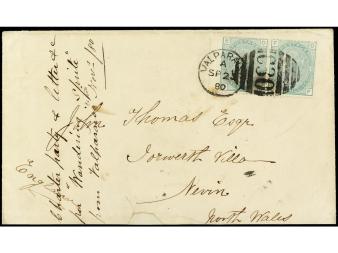 VALPARAISO
A
SP 2
80
C30
John Thomas Esqr
Iorwerth Villa
Nevin
North Wales
Engd
Charter party & letter &c
per "Wandering Sprite"
from Valparaiso